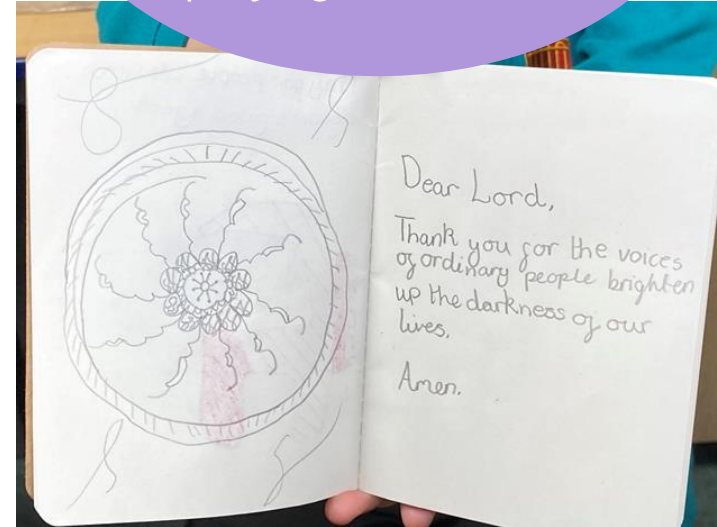 Dear Lord,
Thank you for the voices
of ordinary people brighten
up the darkness of our
lives.
Amen.